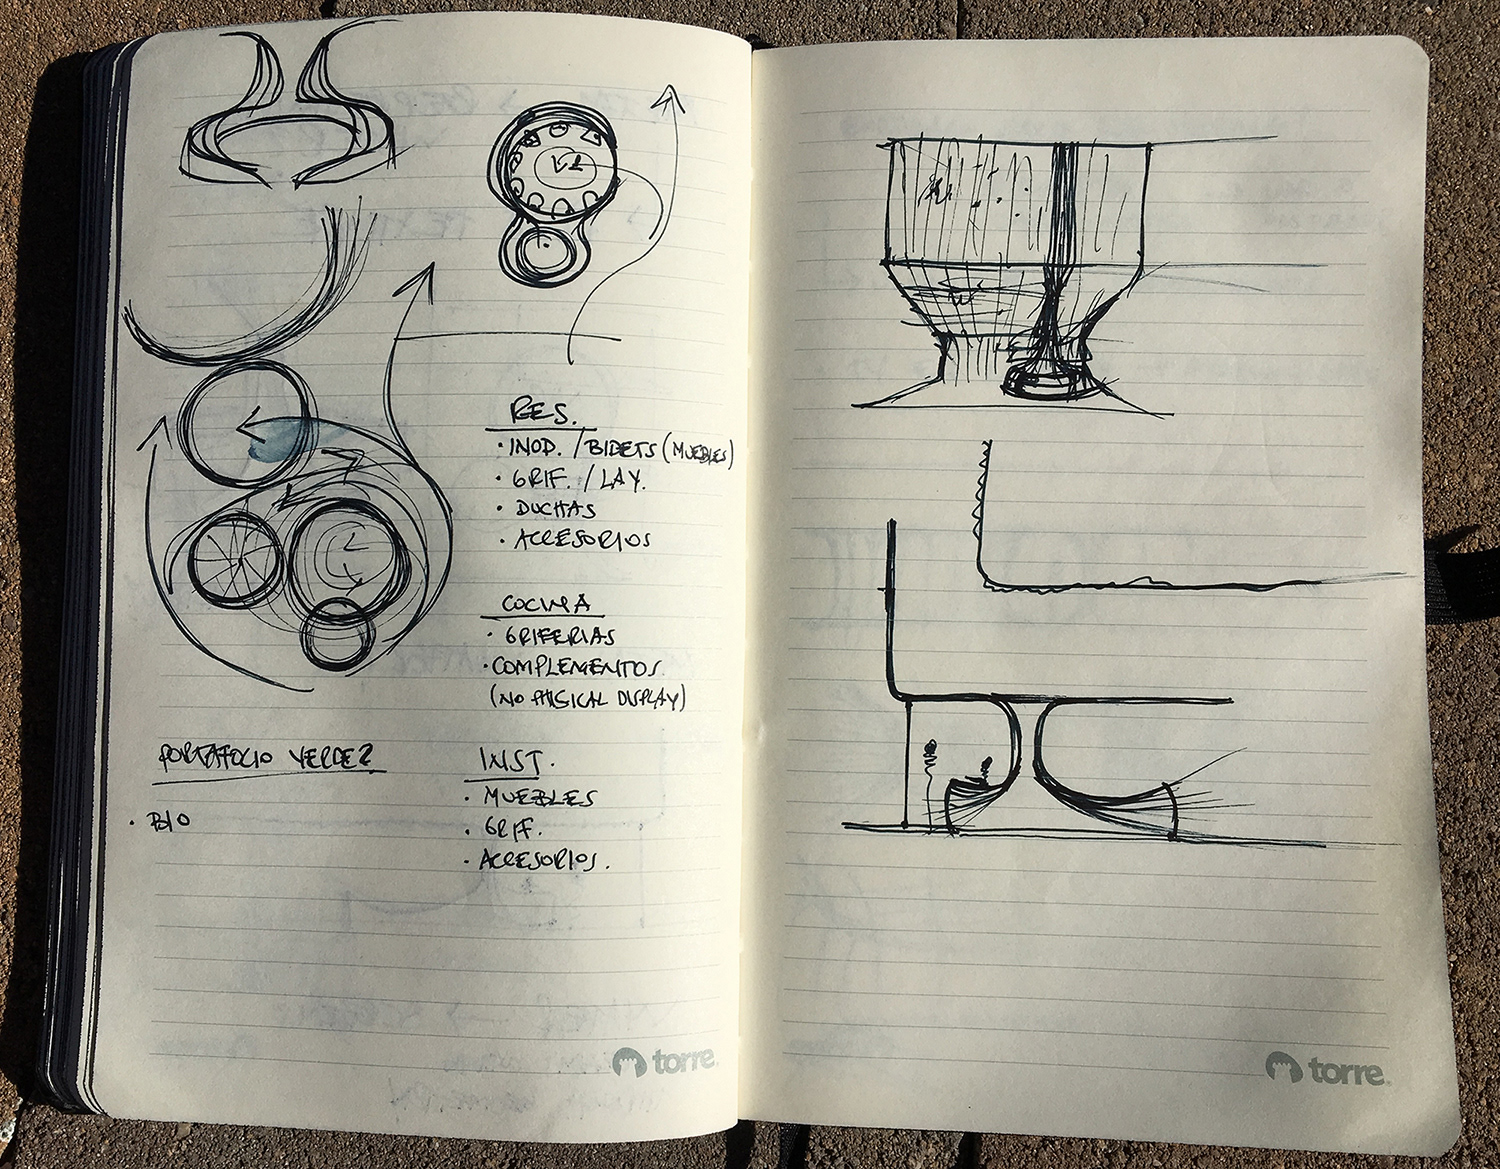 RES.
· INOD. / BIDETS (MUEBLES)
· GRIF. / LAV.
· DUCHAS
· ACCESORIOS
COCINA
· GRIFERIAS
· COMPLEMENTOS
(NO PHISICAL DISPLAY)
PORTAFOLIO VERDE?
· BIO
INST.
· MUEBLES
· GRIF.
· ACCESORIOS.
torre
torre